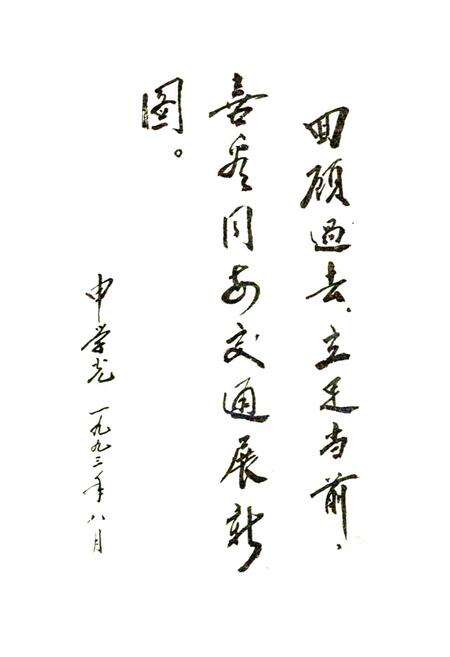 回顾过去、立足当前、
喜看同安交通展新
图。
申学光 一九九三年八月